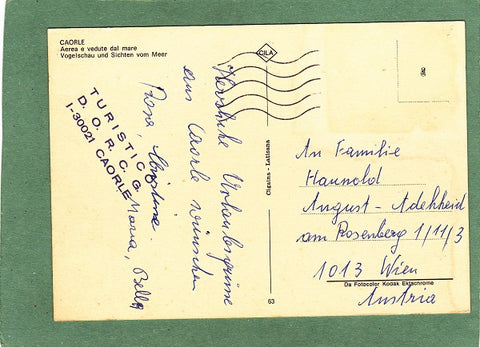 CAORLE
Aerea e vedute dal mare
Vogelschau und Sichten vom Meer
CILA
TURISTIC
D.O.R.C.G.
I-30021 CAORLE
Herzliche Urlaubsgrüsse
aus Caorle wünschen
Rosa,
Maria, Bella
Cigaina - Latisana
63
An Familie
Haunold
August - Adelheid
am Rosenberg 1/11/3
1013 Wien
Da Fotocolor Kodak Ektachrome
Austria